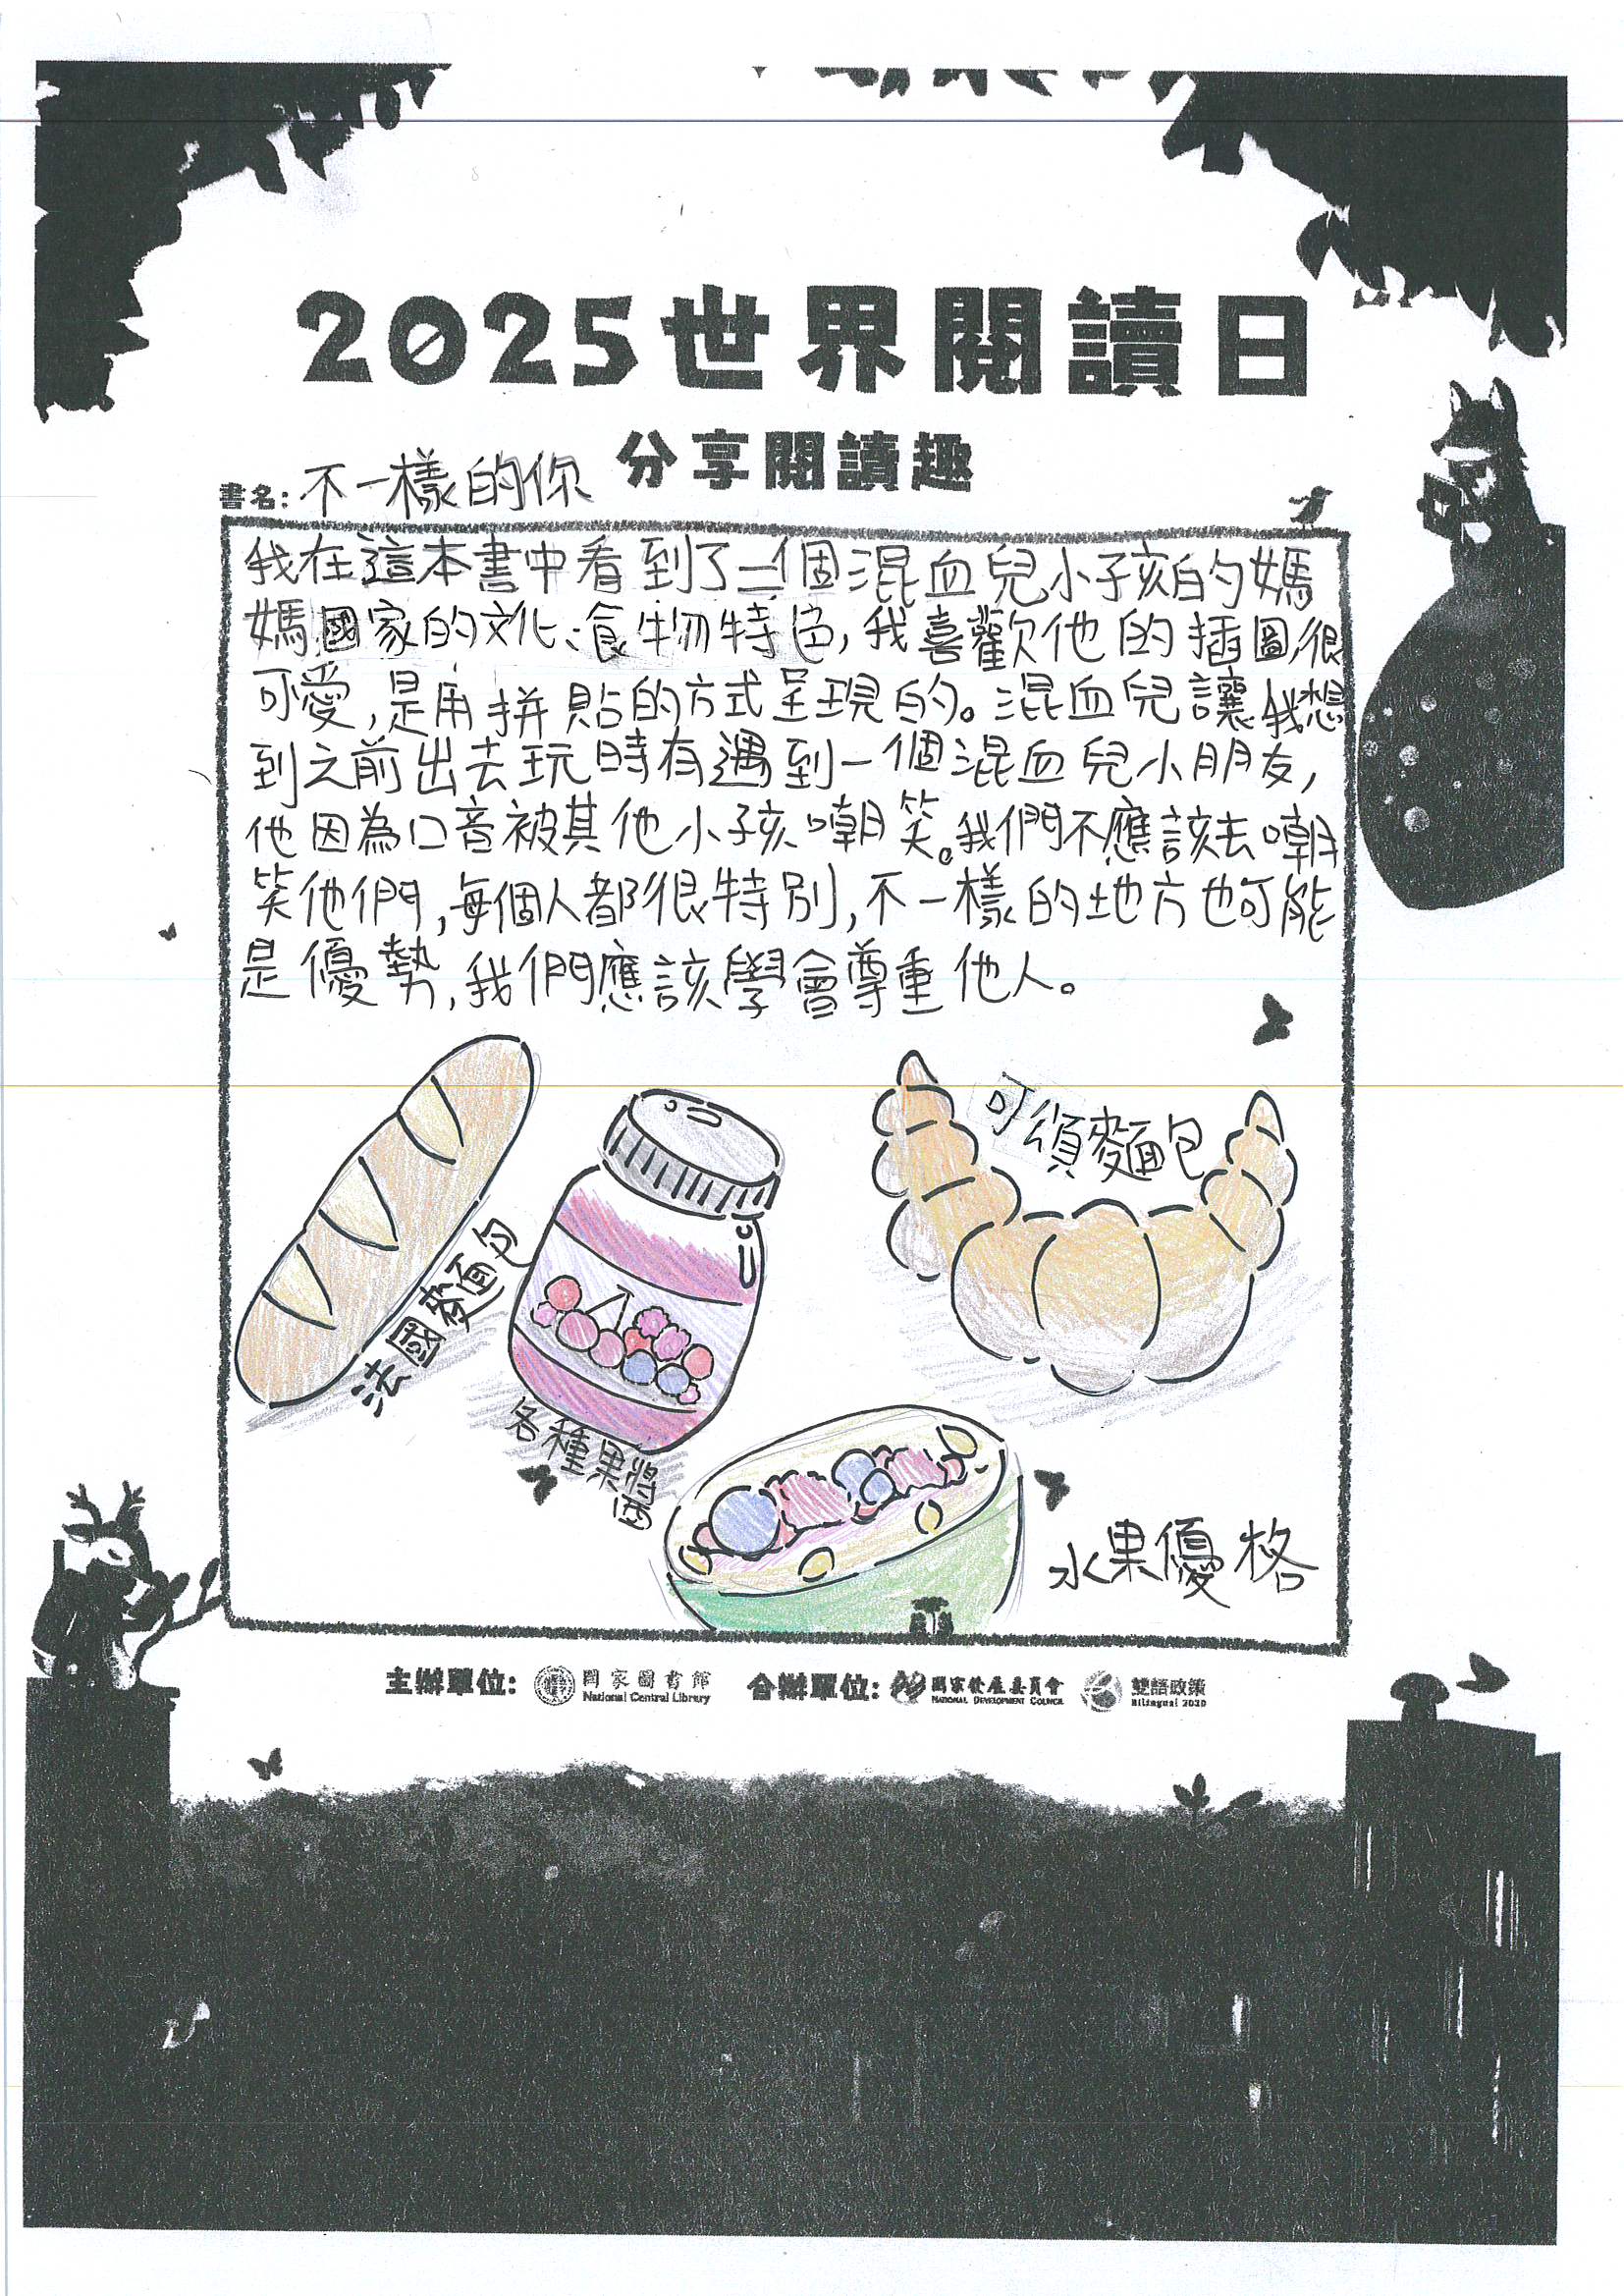 2025世界閱讀日
分享閱讀趣
書名:不一樣的你
我在這本書中看到了三個混血兒小孩的媽
媽國家的文化、食物特色,我喜歡他的插圖,很
可愛,是用拼貼的方式呈現的。混血兒讓我想
到之前出去玩時有遇到一個混血兒小朋友,
他因為口音被其他小孩嘲笑。我們不應該去嘲
笑他們,每個人都很特別,不一樣的地方也可能
是優勢,我們應該學會尊重他人。
可頌麵包
法國麵包
各種果醬
水果優格
主辦單位: 國家圖書館 National Central Library 合辦單位: 國家發展委員會 NATIONAL DEVELOPMENT COUNCIL 雙語政策 Bilingual 2030